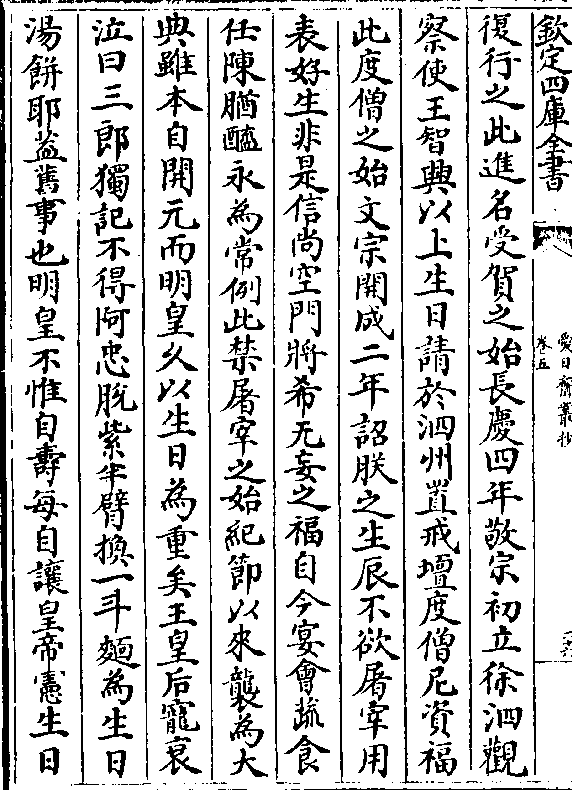 欽定四庫全書
愛日齋叢抄
卷五
復行之此進名受賀之始長慶四年敬宗初立徐泗觀
察使王智興以上生日請於泗州置戒壇度僧尼資福
此度僧之始文宗開成二年詔朕之生辰不欲屠宰用
表好生非是信尚空門將希无妄之福自今宴會蔬食
任陳脯醢永為常例此禁屠宰之始紀節以來襲為大
典雖本自開元而明皇久以生日為重矣王皇后寵衰
泣曰三郎獨記不得阿忠脫紫半臂換一斗麵為生日
湯餅耶葢舊事也明皇不惟自壽每自讓皇帝憲生日